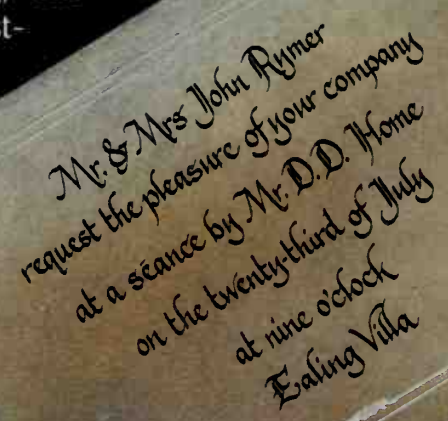 Mr. & Mrs John Rymer
request the pleasure of your company
at a séance by Mr. D.D. Home
on the twenty-third of July
at nine o'clock
Ealing Villa